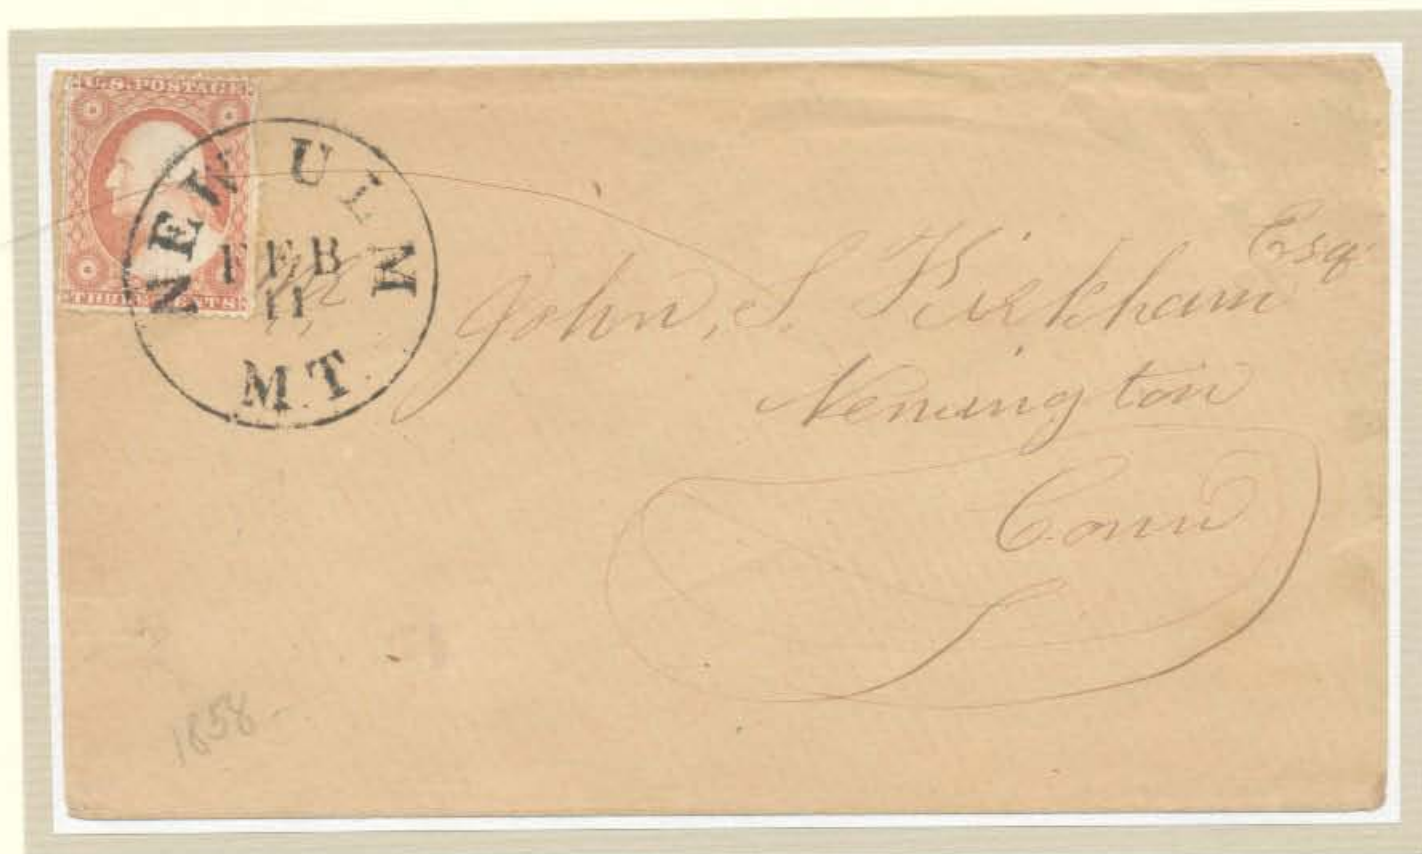 U.S. POSTAGE
THREE CENTS
NEW ULM
FEB
11
M.T.
John, S. Kirkham Esq
Newington
Conn
1858